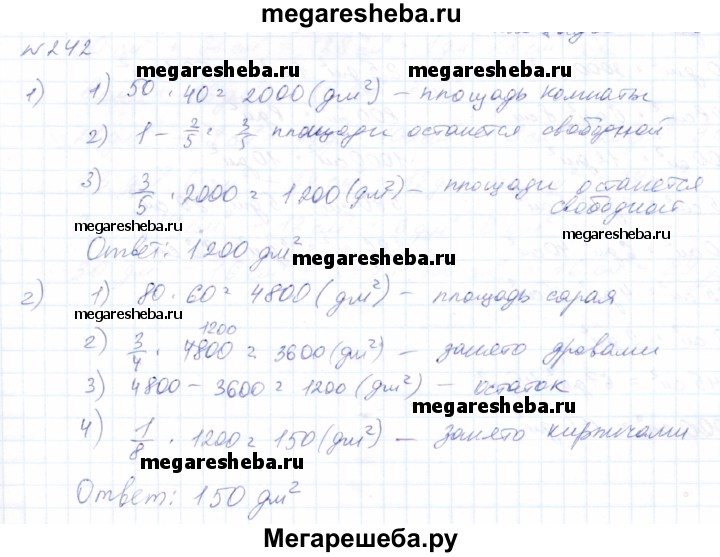 megaresheba.ru
№242
megaresheba.ru megaresheba.ru
1) 1) 50 · 40 = 2000 (дм²) – площадь комнаты
2) 1 – 2/5 = 3/5 площади останется свободной
3) 3/5 · 2000 = 1200 (дм²) – площади останется свободной
megaresheba.ru megaresheba.ru
Ответ: 1200 дм²
megaresheba.ru
2) 1) 80 · 60 = 4800 (дм²) – площадь сарая
megaresheba.ru
1200
2) 3/4 · 4800 = 3600 (дм²) – занято дровами
3) 4800 – 3600 = 1200 (дм²) – остаток
megaresheba.ru
4) 1/8 · 1200 = 150 (дм²) – занято кирпичами
megaresheba.ru
Ответ: 150 дм²
Мегарешеба.ру